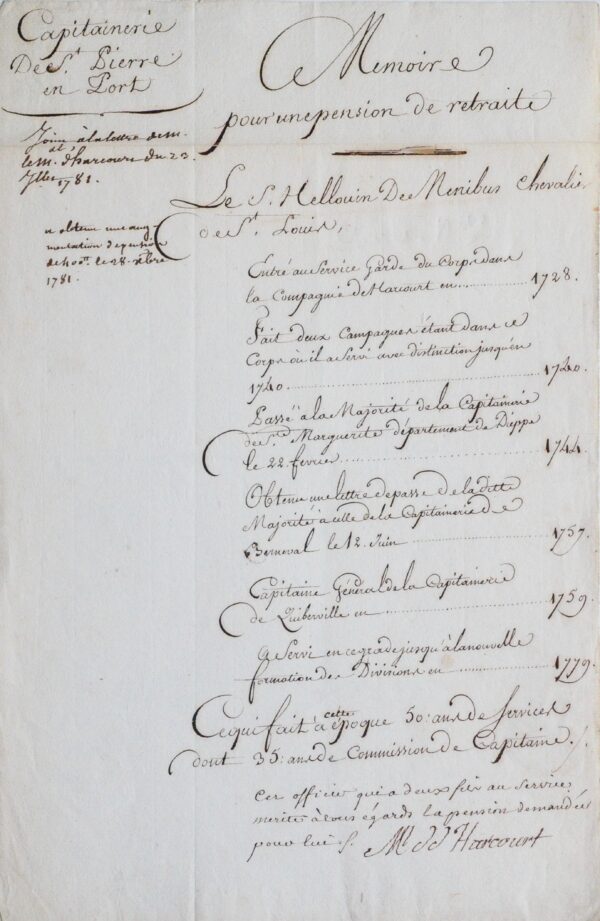 Capitainerie
De St. Pierre
en Port
Joint à la lettre de m.
le m. al d'harcourt du 23.
7bre 1781.
a obtenu une aug
mentation de pension
de 400 le 28.
1781.
Memoire
pour une pension de retraite
Le S. Hellouin De Menibus Chevalier
De St. Louis,
Entré au Service Garde du Corps dans
la Compagnie de Harcourt en ............ 1728.
Fait deux Campagnes étant dans ce
Corps où il a Servi avec distinction jusqu'en
1740 ............ 1740.
Passé à la Majorité de la Capitainerie
de Ste. Marguerite département de Dieppe
le 22. fevrier ............ 1744.
Obtenu une lettre de passe de la ditte
Majorité à celle de la Capitainerie de
Berneval le 12. Juin ............ 1757.
Capitaine Général de la Capitainerie
de Quiberville en ............ 1759.
a Servi en ce grade jusqu'à la nouvelle
formation des Divisions en ............ 1779.
Ce qui fait à cette époque 50. ans de Services
dont 35. ans de Commission de Capitaine.
Cet officier qui a deux fils au Service
merite à tous égards la pension demandée
pour lui. Ml. d'Harcourt